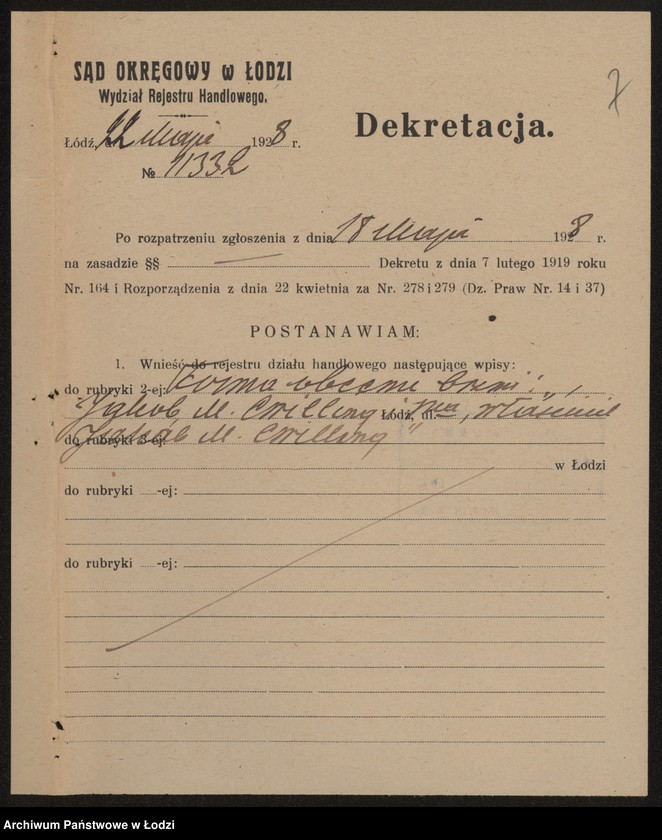 SĄD OKRĘGOWY w ŁODZI
Wydział Rejestru Handlowego.
7
Dekretacja.
Łódź, 22 Maja 1928 r.
№ 11332
Po rozpatrzeniu zgłoszenia z dnia 18 Maja 1928 r.
na zasadzie §§ — Dekretu z dnia 7 lutego 1919 roku
Nr. 164 i Rozporządzenia z dnia 22 kwietnia za Nr. 278 i 279 (Dz. Praw Nr. 14 i 37)
POSTANAWIAM:
1. Wnieść do rejestru działu handlowego następujące wpisy:
do rubryki 2-ej: Firma obecnie brzmi:
"Jakób M. Cwilling" Łódź, ul.
do rubryki 3-ej: Jakób M. Cwilling"
w Łodzi
do rubryki -ej:
do rubryki -ej:
Archiwum Państwowe w Łodzi